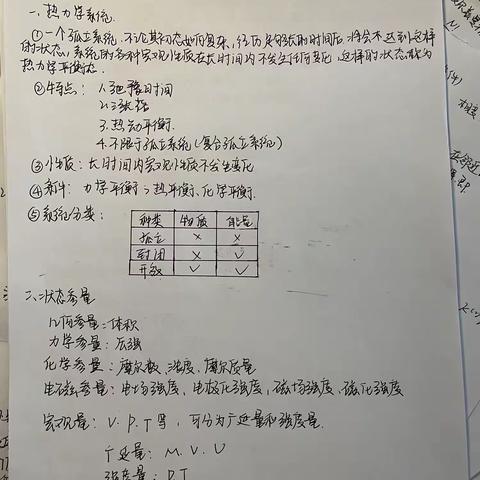 一、热力学系统
①一个孤立系统,不论其初态如何复杂,经历足够长的时间后,将会达到这样
的状态,系统的各种宏观性质在长时间内不发生任何变化,这样的状态称为
热力学平衡态.
②特点: 1.弛豫时间
2.涨落
3.热动平衡
4.不限于孤立系统(复合孤立系统)
③性质: 长时间内宏观性质不发生变化
④条件: 力学平衡、热平衡、化学平衡.
⑤系统分类:
种类 物质 能量
孤立 × ×
封闭 × √
开放 √ √
二、状态参量
几何参量: 体积
力学参量: 压强
化学参量: 摩尔数、浓度、摩尔质量
电磁参量: 电场强度、电极化强度、磁场强度、磁化强度
宏观量: V.P.T等,可分为广延量和强度量.
广延量: M.V.U
强度量: P.T